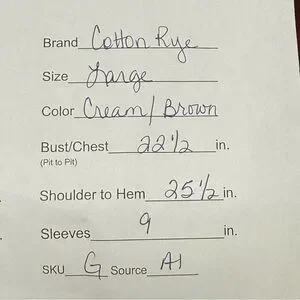 Brand Cotton Rye
Size Large
Color Cream/Brown
Bust/Chest 22 1/2 in.
(Pit to Pit)
Shoulder to Hem 25 1/2 in.
Sleeves 9 in.
SKU G Source A1